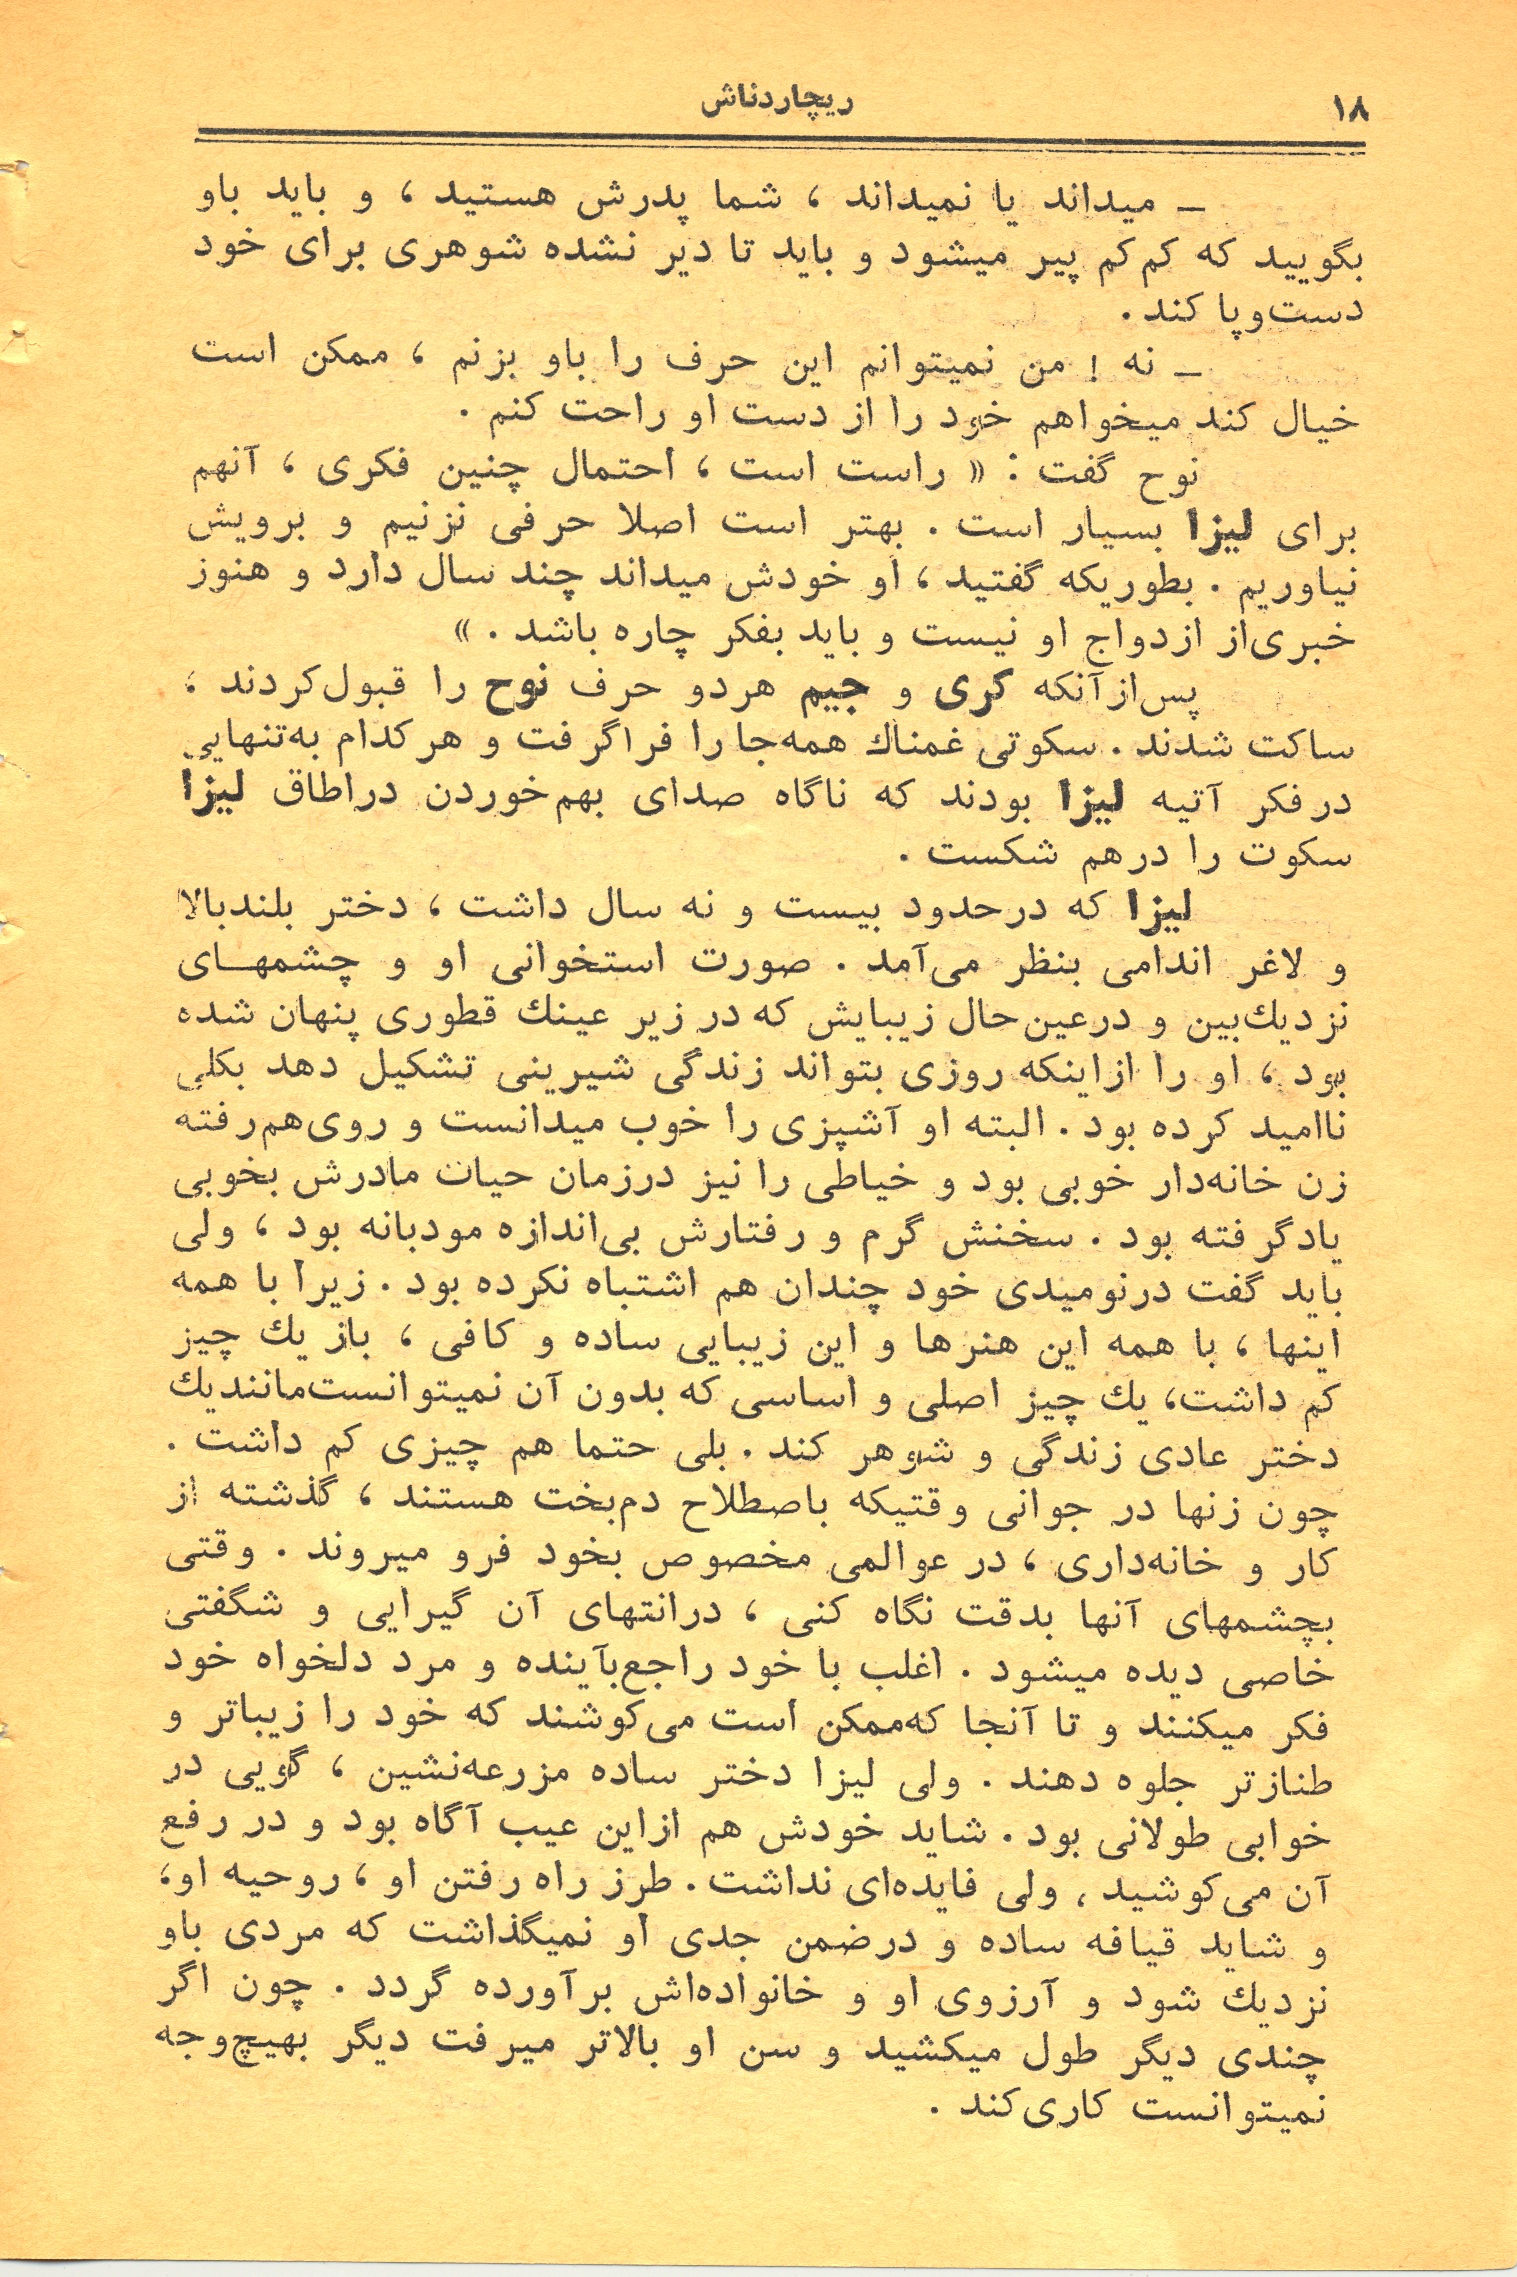 ۱۸
ریچاردناش
ـ میداند یا نمیداند ، شما پدرش هستید ، و باید باو
بگویید که کم‌کم پیر میشود و باید تا دیر نشده شوهری برای خود
دست‌وپا کند .
ـ نه ! من نمیتوانم این حرف را باو بزنم ، ممکن است
خیال کند میخواهم خود را از دست او راحت کنم .
نوح گفت : « راست است ، احتمال چنین فکری ، آنهم
برای لیزا بسیار است . بهتر است اصلا حرفی نزنیم و برویش
نیاوریم . بطوریکه گفتید ، او خودش میداند چند سال دارد و هنوز
خبری‌از ازدواج او نیست و باید بفکر چاره باشد . »
پس‌ازآنکه کری و جیم هردو حرف نوح را قبول‌کردند ،
ساکت شدند . سکوتی غمناك همه‌جا را فراگرفت و هرکدام به‌تنهایی
درفکر آتیه لیزا بودند که ناگاه صدای بهم‌خوردن دراطاق لیزا
سکوت را درهم شکست .
لیزا که درحدود بیست و نه سال داشت ، دختر بلندبالا
و لاغر اندامی بنظر می‌آمد . صورت استخوانی او و چشمهـای
نزدیك‌بین و درعین‌حال زیبایش که در زیر عینك قطوری پنهان شده
بود ، او را ازاینکه روزی بتواند زندگی شیرینی تشکیل دهد بکلی
ناامید کرده بود . البته او آشپزی را خوب میدانست و روی‌هم‌رفته
زن خانه‌دار خوبی بود و خیاطی را نیز درزمان حیات مادرش بخوبی
یادگرفته بود . سخنش گرم و رفتارش بی‌اندازه مودبانه بود ، ولی
باید گفت درنومیدی خود چندان هم اشتباه نکرده بود . زیرا با همه
اینها ، با همه این هنرها و این زیبایی ساده و کافی ، باز یك چیز
کم داشت، یك چیز اصلی و اساسی که بدون آن نمیتوانست‌مانندیك
دختر عادی زندگی و شوهر کند . بلی حتما هم چیزی کم داشت .
چون زنها در جوانی وقتیکه باصطلاح دم‌بخت هستند ، گذشته از
کار و خانه‌داری ، در عوالمی مخصوص بخود فرو میروند . وقتی
بچشمهای آنها بدقت نگاه کنی ، درانتهای آن گیرایی و شگفتی
خاصی دیده میشود . اغلب با خود راجع‌بآینده و مرد دلخواه خود
فکر میکنند و تا آنجا که‌ممکن است می‌کوشند که خود را زیباتر و
طنازتر جلوه دهند . ولی لیزا دختر ساده مزرعه‌نشین ، گویی در
خوابی طولانی بود . شاید خودش هم ازاین عیب آگاه بود و در رفع
آن می‌کوشید ، ولی فایده‌ای نداشت . طرز راه رفتن او ، روحیه او،
و شاید قیافه ساده و درضمن جدی او نمیگذاشت که مردی باو
نزدیك شود و آرزوی او و خانواده‌اش برآورده گردد . چون اگر
چندی دیگر طول میکشید و سن او بالاتر میرفت دیگر بهیچ‌وجه
نمیتوانست کاری‌کند .